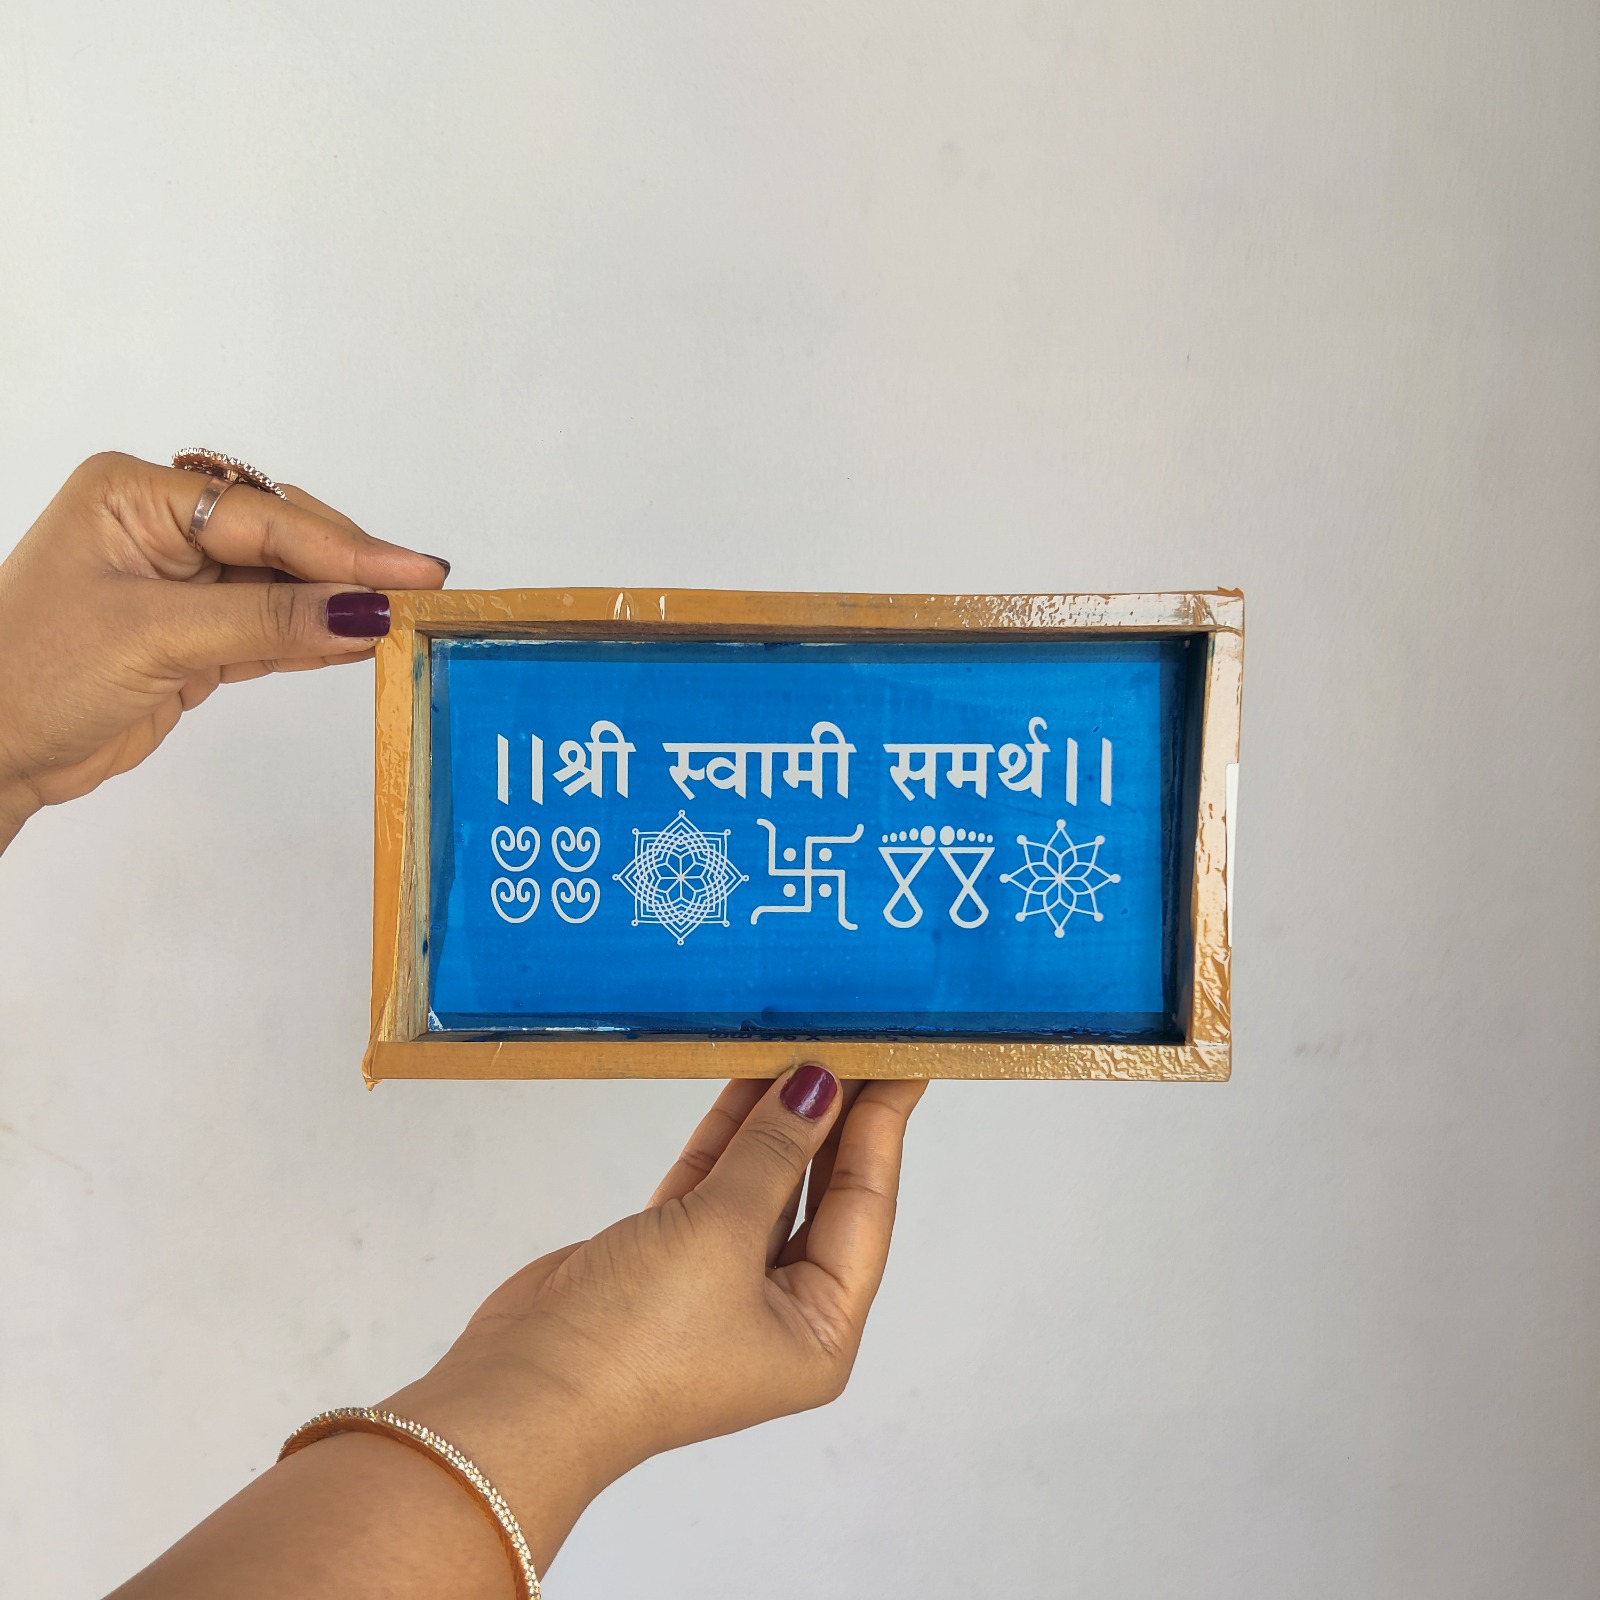 ||श्री स्वामी समर्थ||